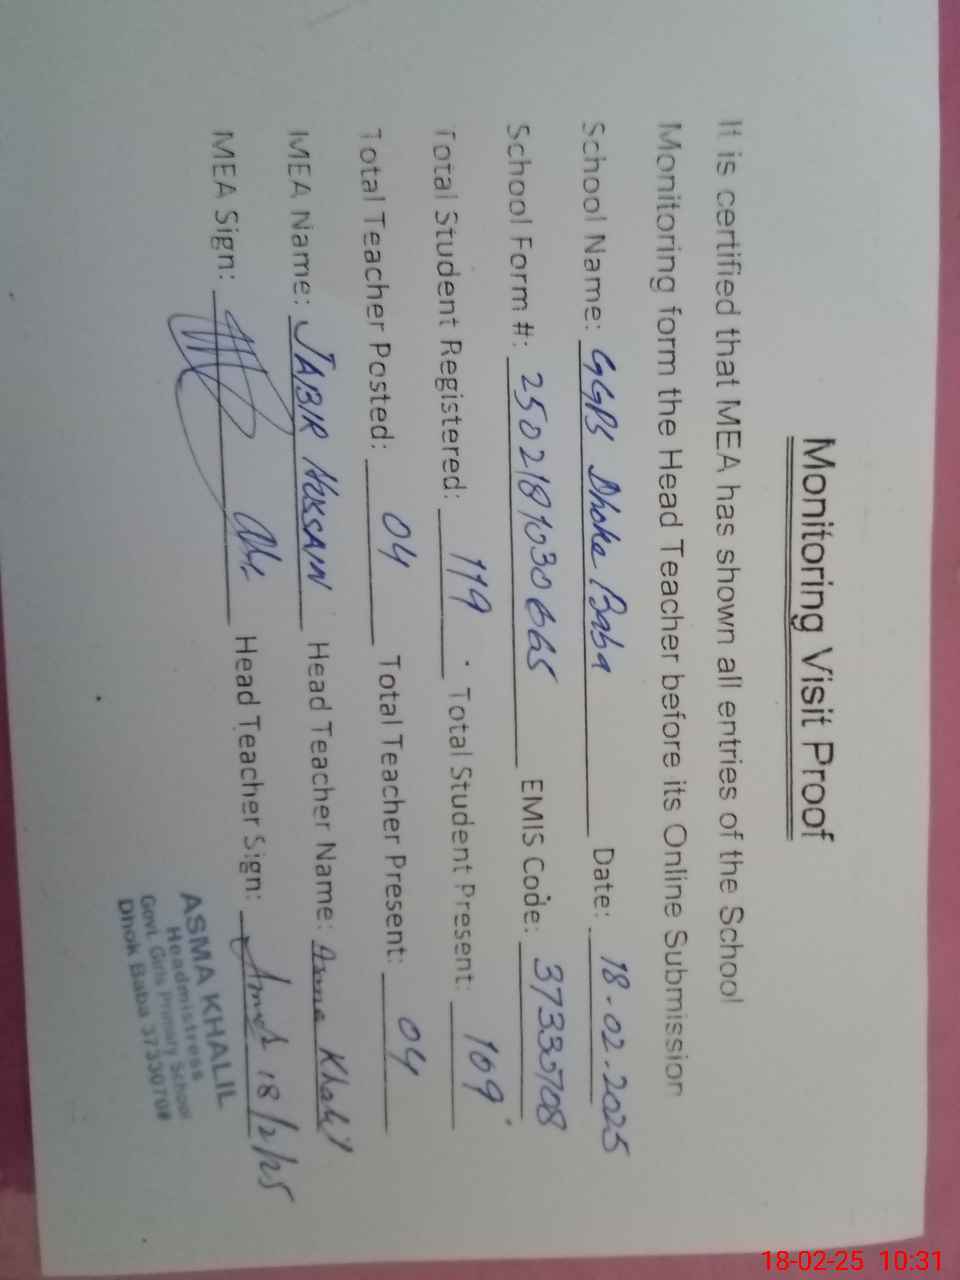 Monitoring Visit Proof
It is certified that MEA has shown all entries of the School
Monitoring form the Head Teacher before its Online Submission
School Name: GGPS Dhoke Baba Date: 18-02-2025
School Form #: 2502181030665 EMIS Code: 37330708
Total Student Registered: 119 Total Student Present: 109
Total Teacher Posted: 04 Total Teacher Present: 04
MEA Name: JABIR HUSSAIN Head Teacher Name: Asma Khalil
MEA Sign: Head Teacher Sign: 18/2/25
ASMA KHALIL
Headmistress
Govt. Girls Primary School
Dhok Baba 37330708
18-02-25 10:31